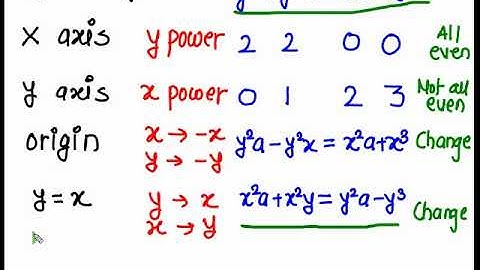 X axis y power 2 2 0 0 All even
y axis x power 0 1 2 3 Not all even
origin x → -x y → -y y²a - y²x = x²a + x³ Change
y = x y → x x → y x²a + x²y = y²a - y³ Change